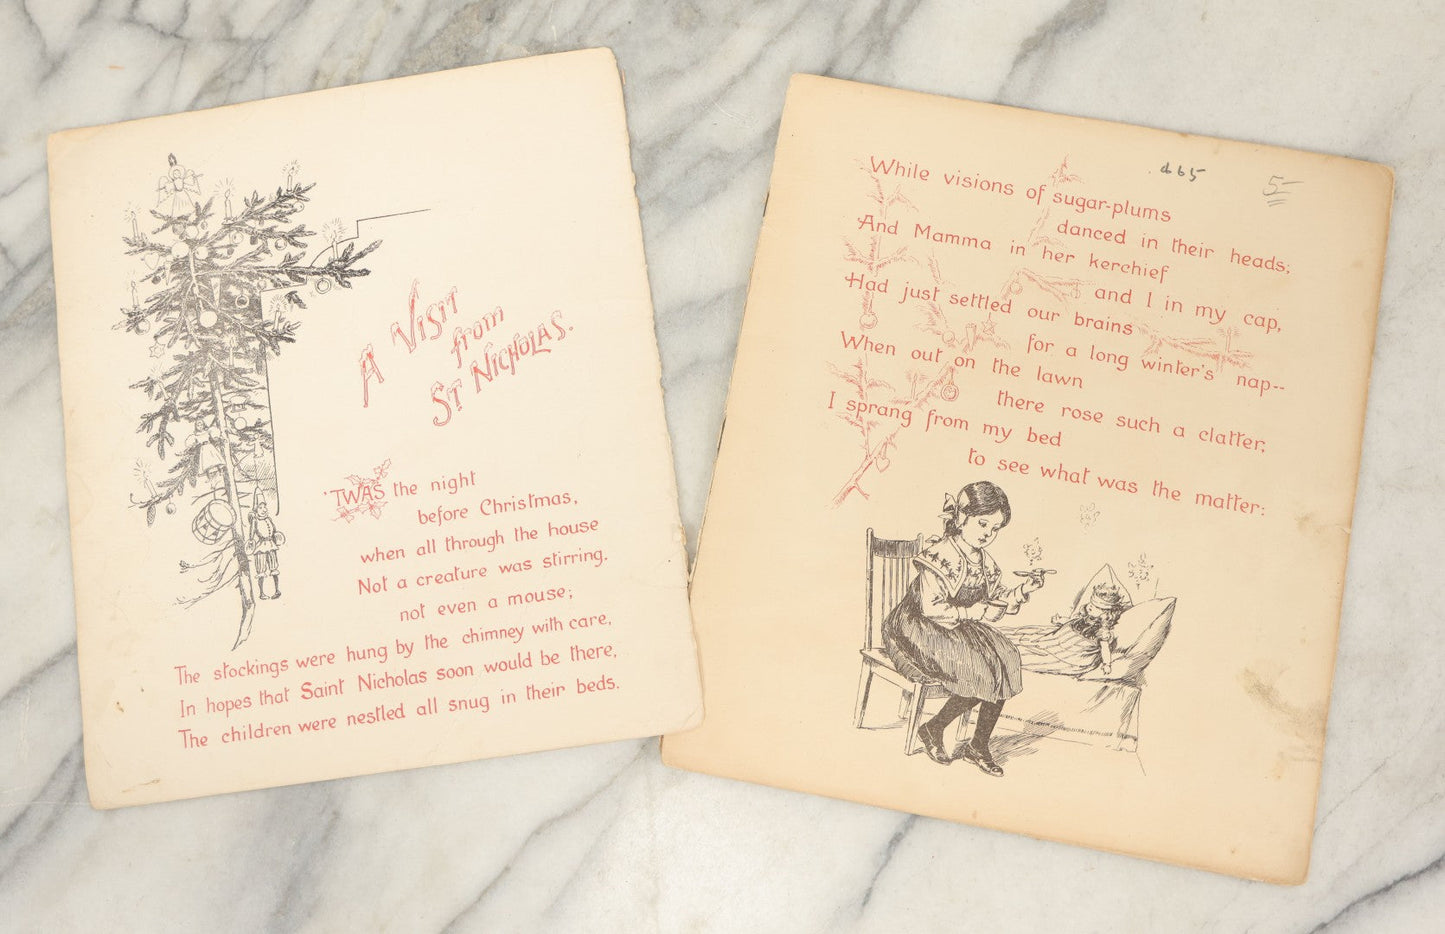 A VISIT
from
ST NICHOLAS.
'TWAS the night
before Christmas,
when all through the house
Not a creature was stirring,
not even a mouse;
The stockings were hung by the chimney with care,
In hopes that Saint Nicholas soon would be there,
The children were nestled all snug in their beds.
465
5-
While visions of sugar-plums
danced in their heads;
And Mamma in her kerchief
and I in my cap,
Had just settled our brains
for a long winter's nap--
When out on the lawn
there rose such a clatter,
I sprang from my bed
to see what was the matter: